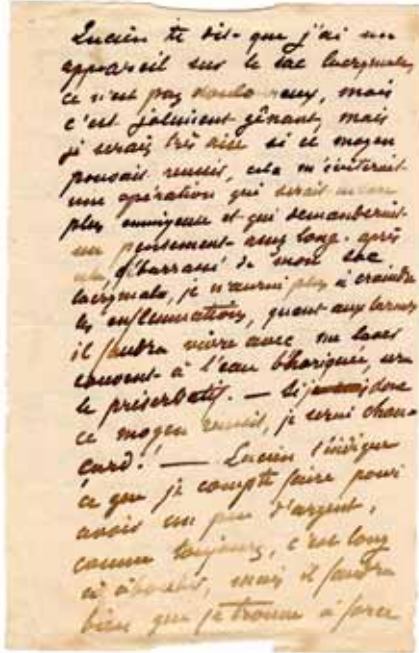 Lucien te dit que j'ai un
appareil sur le sac lacrymale,
ce n'est pas douloureux, mais
c'est joliment gênant, mais
je serais très aise si ce moyen
pouvait reussir, cela m'éviterait
une opération qui serait encore
plus ennuyeuse et qui demanderait
un pansement assez long. après
cela, débarrassé de mon sac
lacrymale, je n'aurai plus à craindre
les inflammations, quant aux larmes
il faudra vivre avec, me laver
souvent à l'eau bhoriquée, sera
le préserbatif. — Si donc
ce moyen reussit, je serai chan-
card! — Lucien t'indique
ce que je compte faire pour
avoir un peu d'argent,
comme toujours, c'est long
à aboutir, mais il faudra
bien que je trouve à force